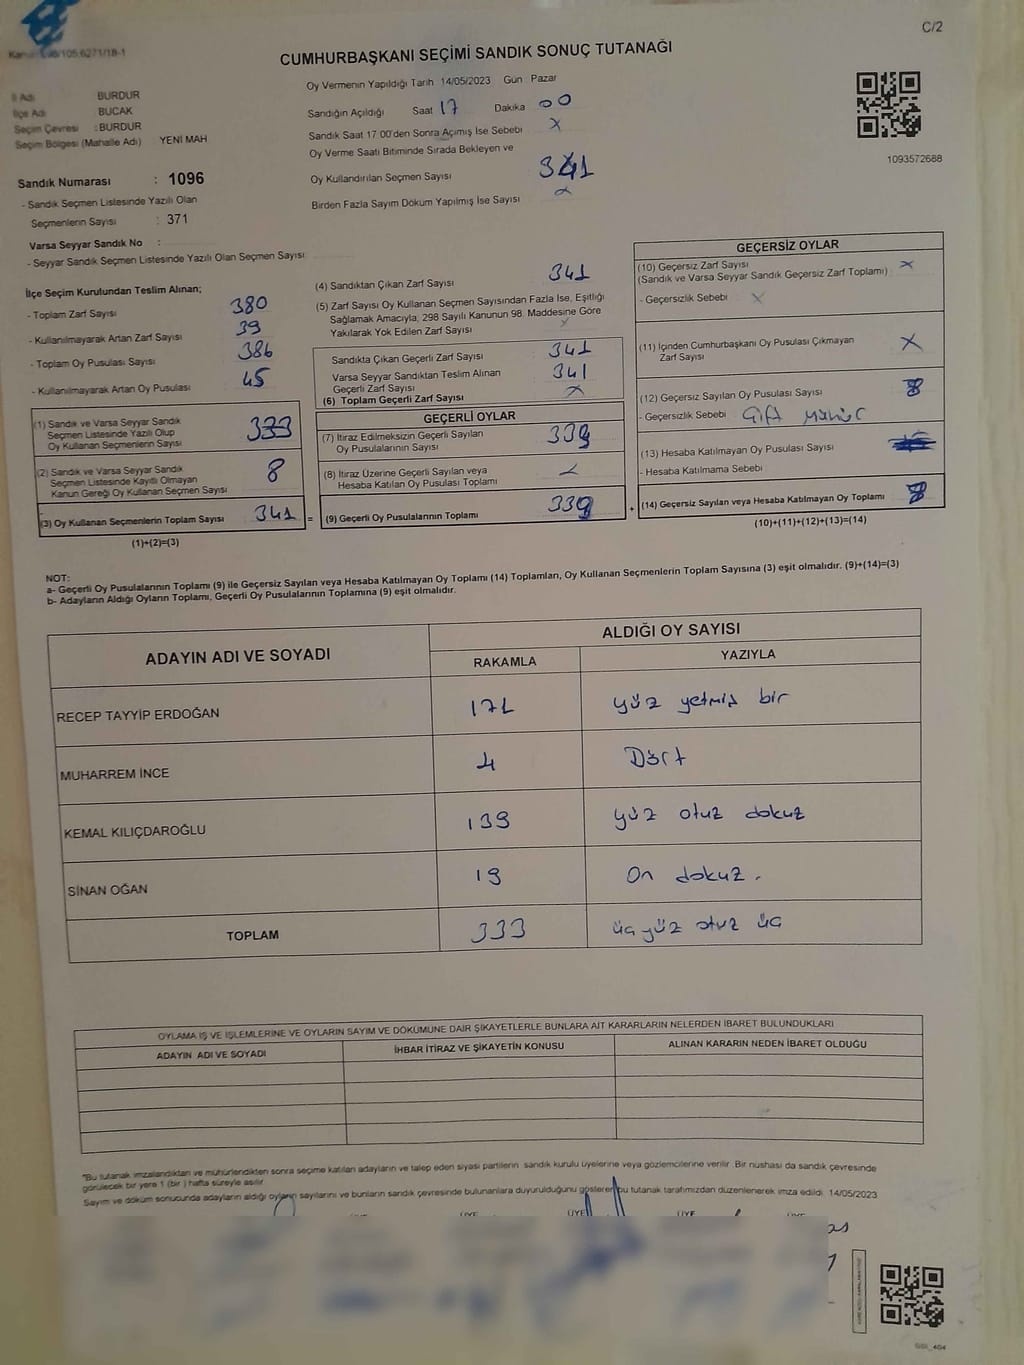 C/2
CUMHURBAŞKANI SEÇİMİ SANDIK SONUÇ TUTANAĞI
İl Adı BURDUR
İlçe Adı BUCAK
Seçim Çevresi : BURDUR
Seçim Bölgesi (Mahalle Adı) YENİ MAH
Sandık Numarası : 1096
- Sandık Seçmen Listesinde Yazılı Olan
Seçmenlerin Sayısı : 371
Varsa Seyyar Sandık No :
- Seyyar Sandık Seçmen Listesinde Yazılı Olan Seçmen Sayısı
Oy Vermenin Yapıldığı Tarih 14/05/2023 Gün Pazar
Sandığın Açıldığı Saat 17 Dakika 00
Sandık Saat 17 00'den Sonra Açımış İse Sebebi X
Oy Verme Saati Bitiminde Sırada Bekleyen ve
Oy Kullandırılan Seçmen Sayısı 341
Birden Fazla Sayım Döküm Yapılmış İse Sayısı
1093572688
İlçe Seçim Kurulundan Teslim Alınan;
- Toplam Zarf Sayısı 380
- Kullanılmayarak Artan Zarf Sayısı 39
- Toplam Oy Pusulası Sayısı 386
- Kullanılmayarak Artan Oy Pusulası 45
(1) Sandık ve Varsa Seyyar Sandık
Seçmen Listesinde Yazılı Olup
Oy Kullanan Seçmenlerin Sayısı 333
(2) Sandık ve Varsa Seyyar Sandık
Seçmen Listesinde Kayıtlı Olmayan
Kanun Gereği Oy Kullanan Seçmen Sayısı 8
(3) Oy Kullanan Seçmenlerin Toplam Sayısı 341 =
(1)+(2)=(3)
(4) Sandıktan Çıkan Zarf Sayısı 341
(5) Zarf Sayısı Oy Kullanan Seçmen Sayısından Fazla İse, Eşitliği
Sağlamak Amacıyla, 298 Sayılı Kanunun 98. Maddesine Göre
Yakılarak Yok Edilen Zarf Sayısı X
Sandıkta Çıkan Geçerli Zarf Sayısı 341
Varsa Seyyar Sandıktan Teslim Alınan 341
Geçerli Zarf Sayısı
(6) Toplam Geçerli Zarf Sayısı X
GEÇERLİ OYLAR
(7) İtiraz Edilmeksizin Geçerli Sayılan
Oy Pusulalarının Sayısı
(8) İtiraz Üzerine Geçerli Sayılan veya
Hesaba Katılan Oy Pusulası Toplamı
(9) Geçerli Oy Pusulalarının Toplamı +
GEÇERSİZ OYLAR
(10) Geçersiz Zarf Sayısı X
(Sandık ve Varsa Seyyar Sandık Geçersiz Zarf Toplamı)
- Geçersizlik Sebebi X
(11) İçinden Cumhurbaşkanı Oy Pusulası Çıkmayan
Zarf Sayısı X
(12) Geçersiz Sayılan Oy Pusulası Sayısı 8
- Geçersizlik Sebebi Çift Mühür
(13) Hesaba Katılmayan Oy Pusulası Sayısı
- Hesaba Katılmama Sebebi
(14) Geçersiz Sayılan veya Hesaba Katılmayan Oy Toplamı 8
(10)+(11)+(12)+(13)=(14)
NOT:
a- Geçerli Oy Pusulalarının Toplamı (9) ile Geçersiz Sayılan veya Hesaba Katılmayan Oy Toplamı (14) Toplamları, Oy Kullanan Seçmenlerin Toplam Sayısına (3) eşit olmalıdır. (9)+(14)=(3)
b- Adayların Aldığı Oyların Toplamı, Geçerli Oy Pusulalarının Toplamına (9) eşit olmalıdır.
ADAYIN ADI VE SOYADI ALDIĞI OY SAYISI
RAKAMLA YAZIYLA
RECEP TAYYİP ERDOĞAN 171 yüz yetmiş bir
MUHARREM İNCE 4 Dört
KEMAL KILIÇDAROĞLU 139 yüz otuz dokuz
SİNAN OĞAN 19 On dokuz.
TOPLAM 333 üç yüz otuz üç
OYLAMA İŞ VE İŞLEMLERİNE VE OYLARIN SAYIM VE DÖKÜMÜNE DAİR ŞİKAYETLERLE BUNLARA AİT KARARLARIN NELERDEN İBARET BULUNDUKLARI
ADAYIN ADI VE SOYADI İHBAR İTİRAZ VE ŞİKAYETİN KONUSU ALINAN KARARIN NEDEN İBARET OLDUĞU
"Bu tutanak imzalandıktan ve mühürlendikten sonra seçime katılan adayların ve talep eden siyasi partilerin sandık kurulu üyelerine veya gözlemcilerine verilir. Bir nüshası da sandık çevresinde
görülecek bir yere 1 (bir) hafta süreyle asılır.
Sayım ve döküm sonucunda adayların aldığı oyların sayılarını ve bunların sandık çevresinde bulunanlara duyurulduğunu gösteren bu tutanak tarafımızdan düzenlenerek imza edildi. 14/05/2023
ÜYE ÜYE ÜYE